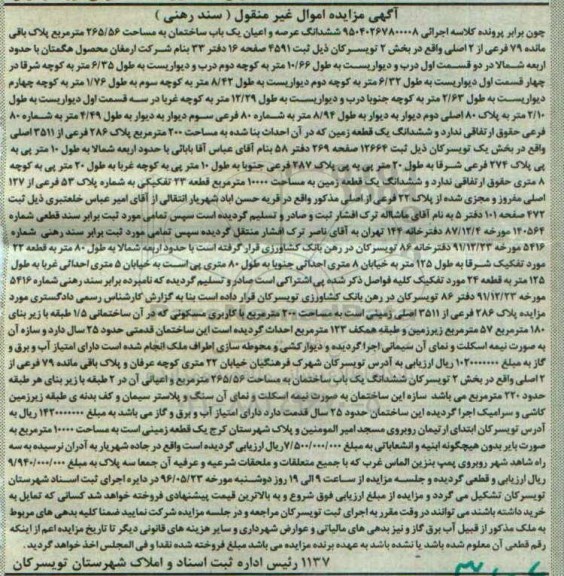 آگهی مزایده اموال غیر منقول ( سند رهنی )
چون برابر پرونده کلاسه اجرائی ۹۵۰۴۰۲۶۷۸۰۰۰۰۸ ششدانگ عرصه و اعیان یک باب ساختمان به مساحت ۲۶۵/۵۶ مترمربع پلاک باقی
مانده ۷۹ فرعی از ۲ اصلی واقع در بخش ۲ تویسرکان ذیل ثبت ۴۵۹۱ صفحه ۱۶ دفتر ۳۳ بنام شرکت ارمغان محصول هگمتان با حدود
اربعه شمالا در دو قسمت اول درب و دیواریست به طول ۱۰/۶۶ متر به کوچه دوم درب و دیواریست به طول ۶/۳۵ متر به کوچه شرقا در
چهار قسمت اول دیواریست به طول ۶/۳۲ متر به کوچه دوم درب و دیواریست به طول ۸/۴۲ متر به کوچه سوم به طول ۱/۷۶ متر به کوچه چهارم
دیواریست به طول ۲/۶۳ متر به کوچه جنوبا درب و دیواریست به طول ۱۲/۲۹ متر به کوچه غربا در سه قسمت اول دیواریست به طول
۲/۱۰ متر به پلاک ۸۰ اصلی دوم دیوار به دیوار به طول ۸/۹۴ متر به شماره ۸۰ فرعی سوم دیوار به دیوار به طول ۴/۴۹ متر به شماره ۸۰
فرعی حقوق ارتفاقی ندارد و ششدانگ یک قطعه زمین که در آن احداث بنا شده به مساحت ۲۰۰ مترمربع پلاک ۲۸۶ فرعی از ۳۵۱۱ اصلی
واقع در بخش یک تویسرکان ذیل ثبت ۱۲۶۶۴ صفحه ۲۶۹ دفتر ۵۸ بنام آقای عباس آقا بابائی با حدود اربعه شمالا به طول ۱۰ متر پی به
پی پلاک ۲۷۴ فرعی شرقا به طول ۲۰ متر پی به پی پلاک ۲۸۷ فرعی جنوبا به طول ۱۰ متر پی به کوچه غربا به طول ۲۰ متر پی به کوچه
۸ متری حقوق ارتفاقی ندارد و ششدانگ یک قطعه زمین به مساحت ۱۰۰۰۰ مترمربع قطعه ۲۳ تفکیکی به شماره پلاک ۵۳ فرعی از ۱۲۷
اصلی مفروز و مجزی شده از پلاک ۲۲ فرعی از اصلی مذکور واقع در قریه حسن اباد شهریار انتقالی از آقای امیر عباس خلعتبری ذیل ثبت
۴۷۲ صفحه ۱۰۱ دفتر ۵ به نام آقای ماشااله ترک افشار ثبت و صادر و تسلیم گردیده است سپس تمامی مورد ثبت برابر سند قطعی شماره
۱۴۰۵۶۴ مورخه ۸۷/۱۲/۴ دفترخانه ۱۴۴ تهران به آقای ناصر ترک افشار منتقل گردیده سپس تمامی مورد ثبت برابر سند رهنی شماره
۵۴۱۶ مورخه ۹۱/۱۲/۲۳ دفترخانه ۸۶ تویسرکان در رهن بانک کشاورزی قرار گرفته است با حدود اربعه شمالا به طول ۸۰ متر به قطعه ۲۲
مورد تفکیک شرقا به طول ۱۲۵ متر به خیابان ۸ متری احداثی جنوبا به طول ۸۰ متری پی است به خیابان ۵ متری احداثی غربا به طول
۱۲۵ متر به قطعه ۲۴ مورد تفکیک کلیه فواصل ذکر شده پی اشتراکی است صادر و تسلیم گردیده که نامبرده برابر سند رهنی شماره ۵۴۱۶
مورخه ۹۱/۱۲/۲۳ دفتر ۸۶ تویسرکان در رهن بانک کشاورزی تویسرکان قرار داده است بنا به گزارش کارشناس رسمی دادگستری مورد
مزایده پلاک ۲۸۶ فرعی از ۳۵۱۱ اصلی زمینی است به مساحت ۲۰۰ مترمربع با کاربری مسکونی که در آن ساختمانی ۱/۵ طبقه با زیر بنای
۱۸۰ مترمربع ۵۷ مترمربع زیرزمین و طبقه همکف ۱۲۳ مترمربع احداث گردیده است این ساختمان قدمتی حدود ۲۵ سال دارد و سازه آن
به صورت نیمه اسکلت و نمای آن سیمانی اجرا گردیده و دیوارکشی و محوطه سازی اطراف ملک انجام شده است دارای امتیاز آب و برق و
گاز به مبلغ ۱۰۲۰۰۰۰۰۰۰ ریال ارزیابی به آدرس تویسرکان شهرک فرهنگیان خیابان ۲۲ متری کوچه عرفان و پلاک باقی مانده ۷۹ فرعی از
۲ اصلی واقع در بخش ۲ تویسرکان ششدانگ یک باب ساختمان به مساحت ۲۶۵/۵۶ مترمربع و اعیانی آن در ۲ طبقه با زیر بنای هر طبقه
حدود ۲۲۰ مترمربع می باشد سازه این ساختمان به صورت نیمه اسکلت و نمای آن سنگ و پلاستر سیمان و کف بدنه ی طبقه زیرزمین
کاشی و سرامیک اجرا گردیده این ساختمان حدود ۲۵ سال قدمت دارد دارای امتیاز آب و برق و گاز می باشد به مبلغ ۱۴۲۰۰۰۰۰۰۰ ریال به
آدرس تویسرکان ابتدای ارتیمان روبروی مسجد امیر المومنین و پلاک شهرستان کرج یک قطعه زمینی است به مساحت ۱۰۰۰۰ مترمربع به
صورت بایر بدون هیچگونه ابنیه و انشعاباتی به مبلغ ۷/۵۰۰/۰۰۰/۰۰۰ ریال ارزیابی گردیده است واقع در جاده شهریار به آدران نرسیده به سه
راه شاهد شهر روبروی پمپ بنزین الماس غرب که با جمیع متعلقات و ملحقات شرعیه و عرفیه آن جمعا سه پلاک به مبلغ ۹/۹۴۰/۰۰۰/۰۰۰
ریال ارزیابی و قطعی گردیده و جلسه مزایده از ساعت ۹ الی ۱۹ روز دوشنبه مورخه ۹۶/۰۵/۲۳ در دایره اجرای ثبت اسناد شهرستان
تویسرکان تشکیل می گردد و مزایده از مبلغ ارزیابی فوق شروع و به بالاترین قیمت پیشنهادی فروخته خواهد شد کسانی که تمایل به
خرید داشته باشند می توانند در وقت مقرر به اجرای ثبت تویسرکان مراجعه و در جلسه مزایده شرکت نمایند ضمنا کلیه بدهی های مربوط
به ملک مذکور از قبیل آب برق گاز و نیز بدهی های مالیاتی و عوارض شهرداری و سایر هزینه های قانونی دیگر تا تاریخ مزایده اعم از اینکه
رقم قطعی آن معلوم شده باشد یا نشده باشد به عهده برنده مزایده می باشد مبلغ فروخته شده نقدا و فی المجلس اخذ خواهد گردید.
۱۱۳۷ رئیس اداره ثبت اسناد و املاک شهرستان تویسرکان